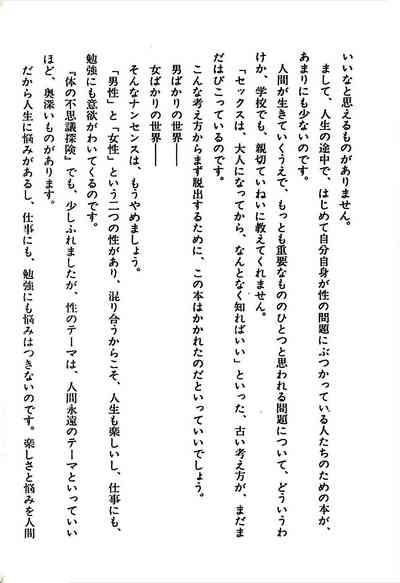 いいなと思えるものがありません。
まして、人生の途中で、はじめて自分自身が性の問題にぶつかっている人たちのための本が、
あまりにも少ないのです。
人間が生きていくうえで、もっとも重要なもののひとつと思われる問題について、どういうわ
けか、学校でも、親切ていねいに教えてくれません。
「セックスは、大人になってから、なんとなく知ればいい」といった、古い考え方が、まだま
だはびこっているのです。
こんな考え方からまず脱出するために、この本はかかれたのだといっていいでしょう。
男ばかりの世界――
女ばかりの世界――
そんなナンセンスは、もうやめましょう。
「男性」と「女性」という二つの性があり、混り合うからこそ、人生も楽しいし、仕事にも、
勉強にも意欲がわいてくるのです。
『体の不思議探険』でも、少しふれましたが、性のテーマは、人間永遠のテーマといっていい
ほど、奥深いものがあります。
だから人生に悩みがあるし、仕事にも、勉強にも悩みはつきないのです。楽しさと悩みを人間